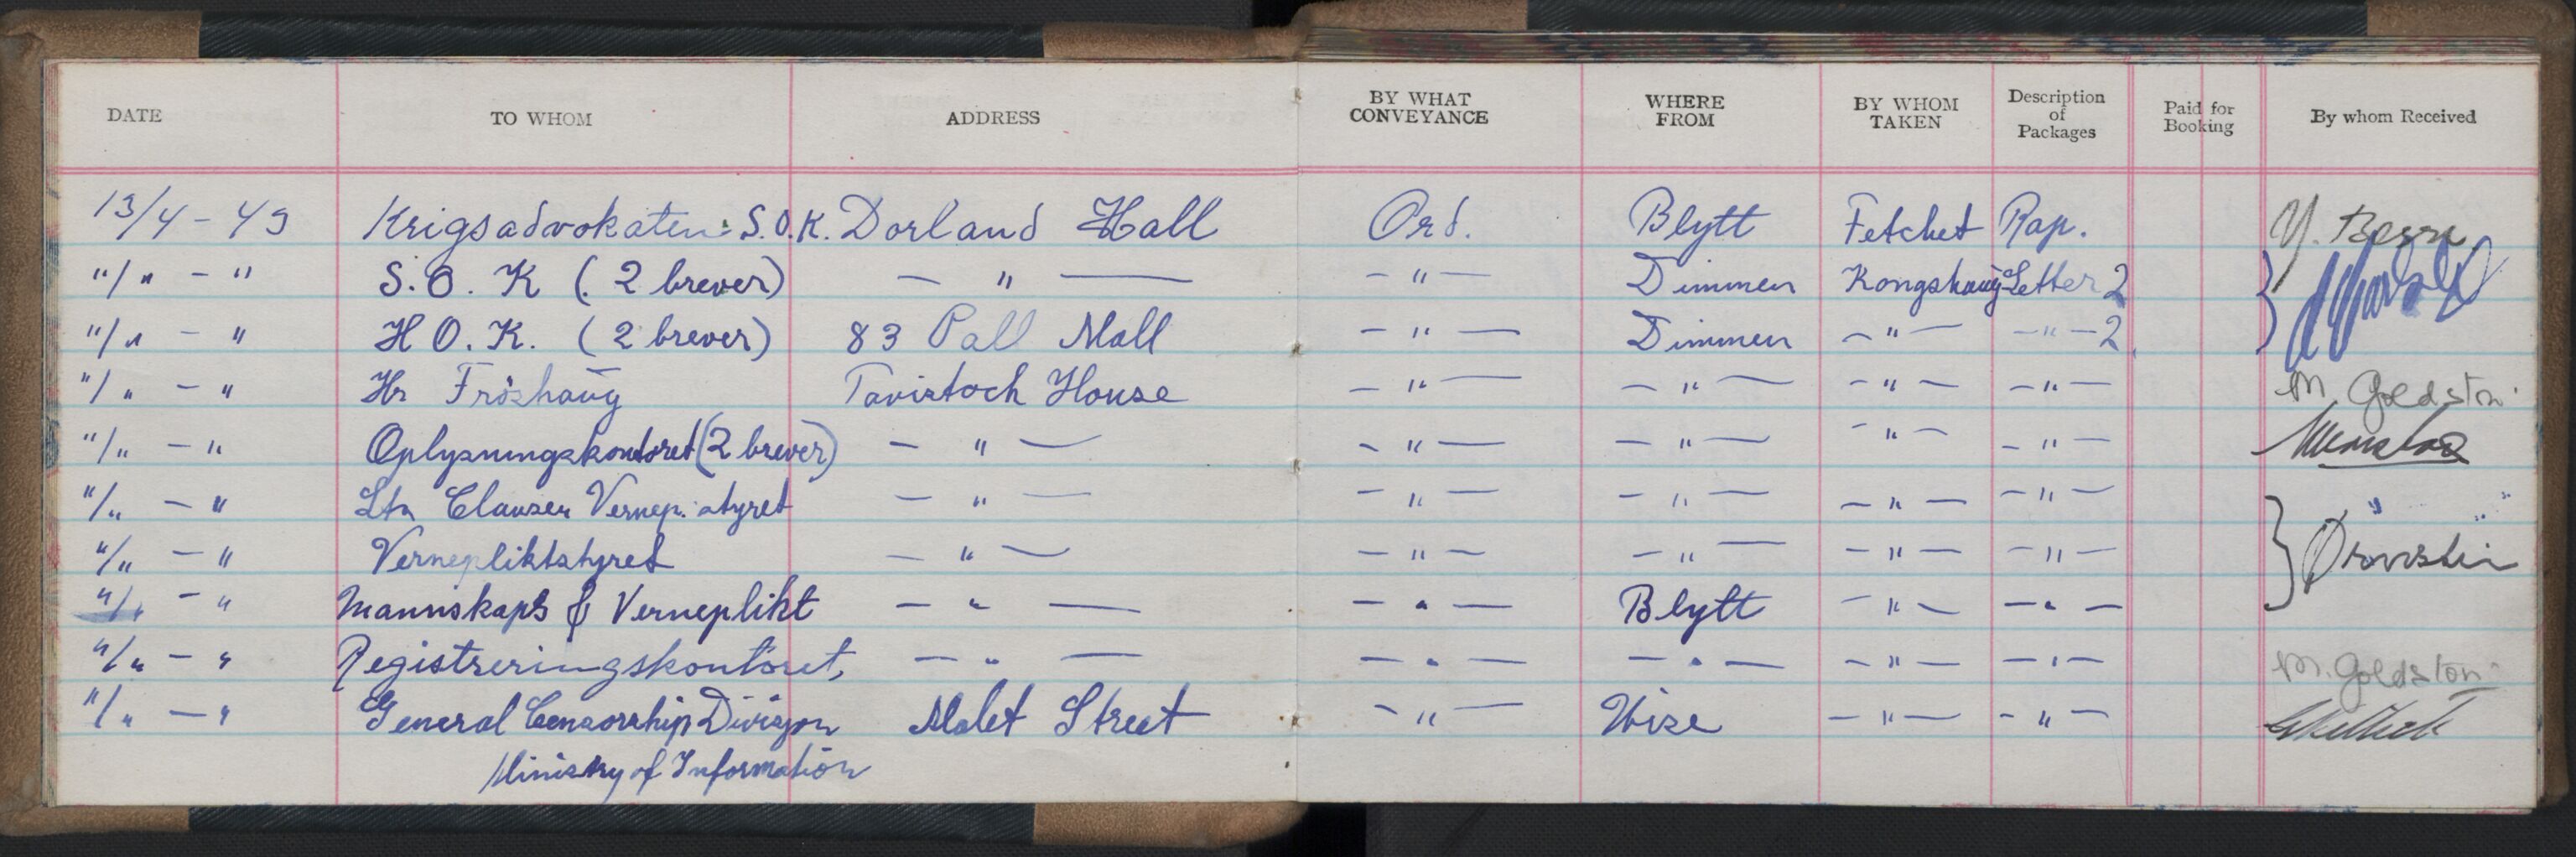 DATE TO WHOM ADDRESS BY WHAT CONVEYANCE WHERE FROM BY WHOM TAKEN Description of Packages Paid for Booking By whom Received
13/4 - 43 Krigsadvokaten S.O.K. Dorland Hall Ord. Blytt Fetchet Rap.
"/" - " S.O.K (2 brever) — " — - " — Dimmen Kongshaug Letter 2
"/" - " H.O.K. (2 brever) 83 Pall Mall - " — Dimmen - " — - " - 2
"/" - " Hr Fröshaug Tavistock House - " — - " — - " — - " — M. Goldston
"/" - " Oplysningskontoret (2 brever) — " — - " — - " — - " — - " —
"/" - " Ltn Clausen Vernep. styret — " — - " — - " — - " — - " —
"/" - " Vernepliktstyret — " — - " — - " — - " — - " —
"/" - " Mannskaps & Verneplikt — " — - " — Blytt - " — - " —
"/" - " Registreringskontoret, — " — - " — - " — - " — - " — M. Goldston
"/" - " General Censorship Divison Malet Street - " — Wise - " — - " —
Ministry of Information